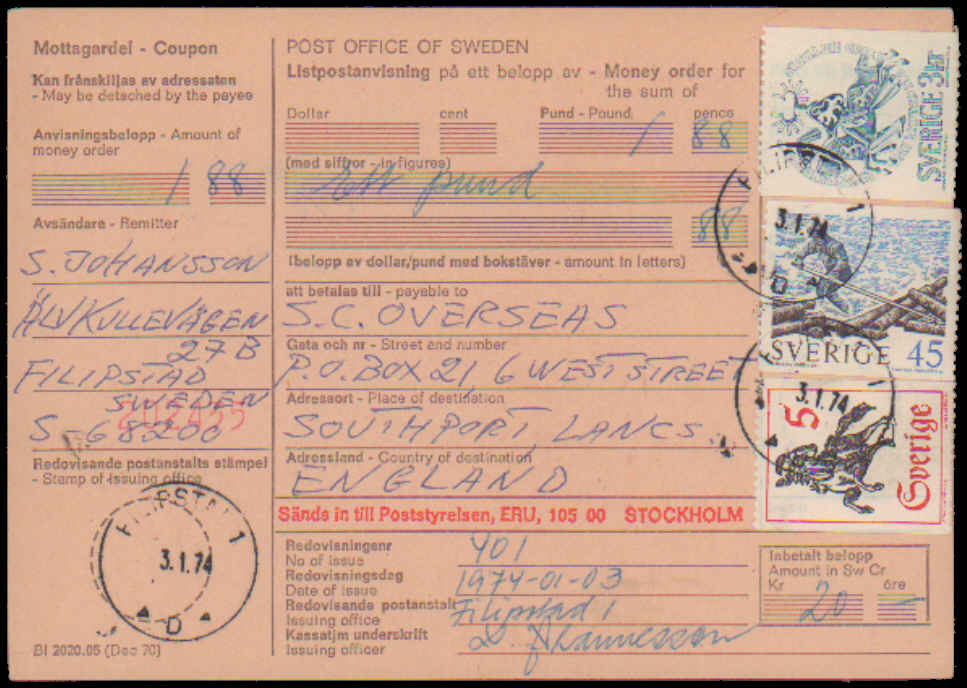 Mottagardel - Coupon
Kan frånskiljas av adressaten
- May be detached by the payee
Anvisningsbelopp - Amount of
money order
1 88
Avsändare - Remitter
S. JOHANSSON
ÄLVKULLEVÄGEN
27B
FILIPSTAD
SWEDEN
S-68200
Redovisande postanstalts stämpel
- Stamp of issuing office
FILIPSTAD 1
3.1.74
D
BI 2020.05 (Dec 70)
POST OFFICE OF SWEDEN
Listpostanvisning på ett belopp av - Money order for
the sum of
Dollar cent Pund - Pound, pence
1 88
(med siffror - in figures)
Ett pund
88
(belopp av dollar/pund med bokstäver - amount in letters)
att betalas till - payable to
S.C. OVERSEAS
Gata och nr - Street and number
P.O. BOX 21, 6 WEST STREET
Adressort - Place of destination
SOUTHPORT, LANCS.
Adressland - Country of destination
ENGLAND
Sänds in till Poststyrelsen, ERU, 105 00 STOCKHOLM
Redovisningsnr
No of issue
401
Redovisningsdag
Date of issue
1974-01-03
Redovisande postanstalt
Issuing office
Filipstad 1
Kassatjm underskrift
Issuing officer
Inbetalt belopp
Amount in Sw Cr
Kr öre
20 —
SVERIGE 3kr
FILIPSTAD 1
3.1.74
D
SVERIGE 45
3.1.74
1
5 Sverige